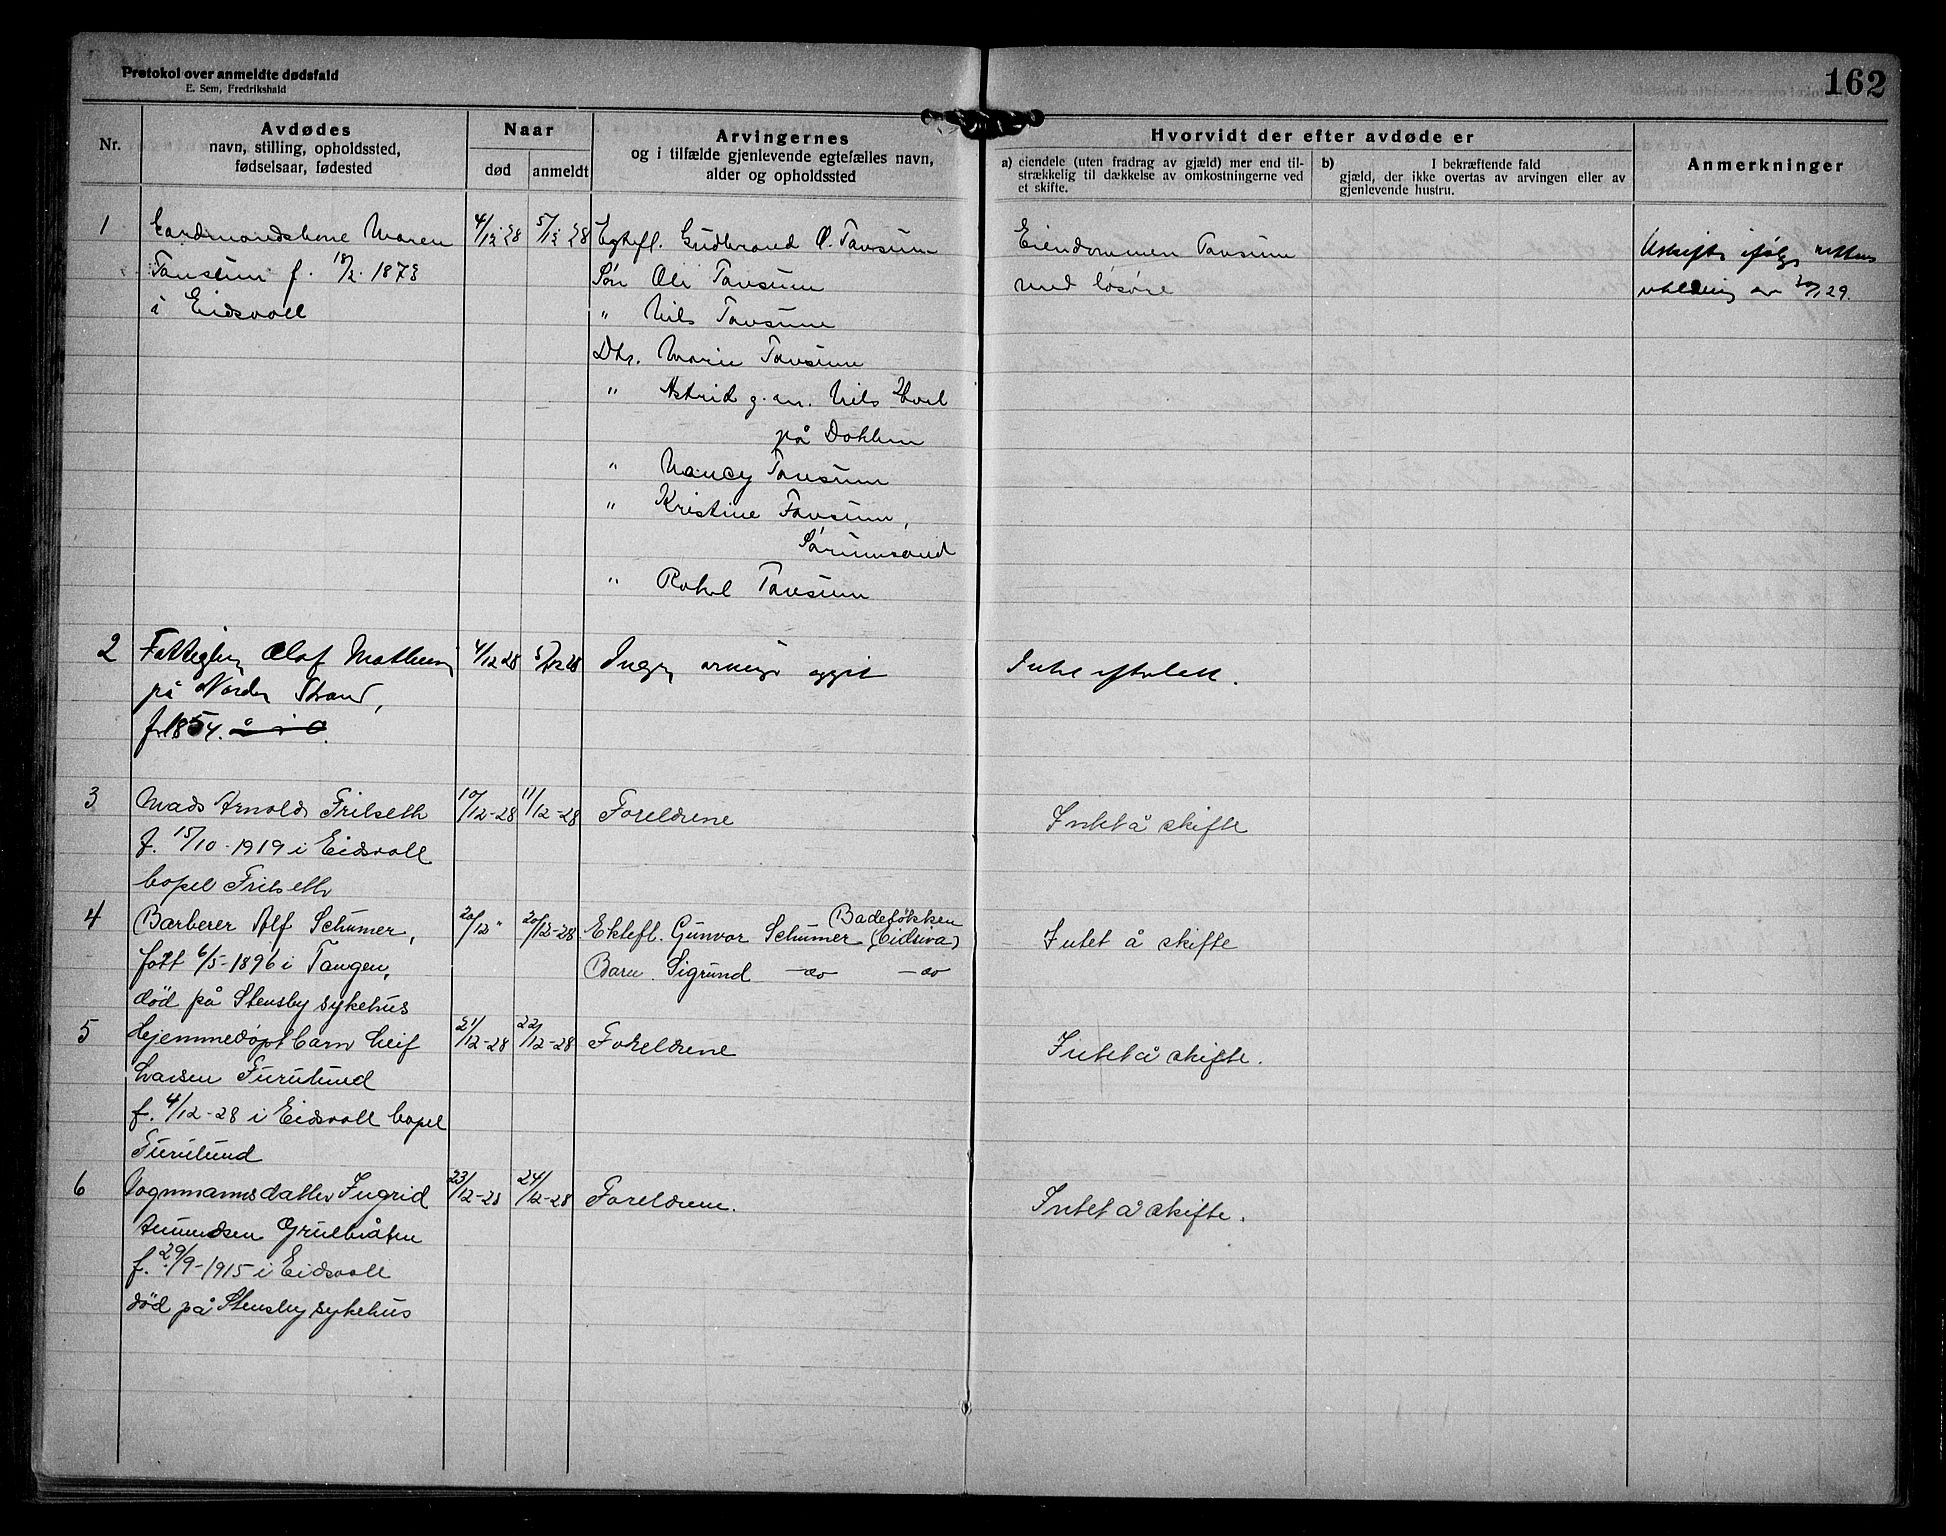 Protokol over anmeldte dødsfald
E. Sem, Fredrikshald
162
Nr.
Avdødes
navn, stilling, opholdssted,
fødselsaar, fødested
Naar
død
anmeldt
Arvingernes
og i tilfælde gjenlevende egtefælles navn,
alder og opholdssted
Hvorvidt der efter avdøde er
a) eiendele (uten fradrag av gjæld) mer end til-
strækkelig til dækkelse av omkostningerne ved
et skifte.
b) I bekræftende fald
gjæld, der ikke overtas av arvingen eller av
gjenlevende hustru.
Anmerkninger
1
Gardmandskone Maren
Tansum f. 18/2 1873
i Eidsvoll
4/12 28
5/12 28
Egtefl. Gudbrand O. Tansum
Søn Ole Tansum
" Nils Tansum
Dtr. Marie Tansum
" Astrid g. m. Nils
på Dokken
" Nancy Tansum
" Kristine Tansum,
Sørumsand
" Rakel Tansum
Eiendommen Tansum
med løsøre
Uskifte ifølge rettens
av 29.
2
Fattiglem Olaf Mathisen
på Nordre Strand,
f. 1854.
4/12 28
5/12 28
Ingen arvinger opgit
Intet efterlatt.
3
Mads Arnolds Frilseth
f. 15/10-1919 i Eidsvoll
bopel Frilseth
10/12-28
11/12-28
Foreldrene
Intet å skifte
4
Barberer Alf Schumer,
født 6/5-1896 i Tangen,
død på Stensby sykehus
20/12 "
20/12-28
Badebakken
Ektefl. Gunvor Schumer (Eidsiva)
Barn Sigrund -do- -do-
Intet å skifte
5
Hjemmedøpt barn Leif
Larsen Furulund
f. 4/12-28 i Eidsvoll bopel
Furulund
21/12-28
22/12-28
Foreldrene
Intet å skifte.
6
Vognmannsdatter Ingrid
Amundsen Grulbråten
f. 29/9-1915 i Eidsvoll
død på Stensby sykehus
23/12-28
24/12-28
Foreldrene.
Intet å skifte.